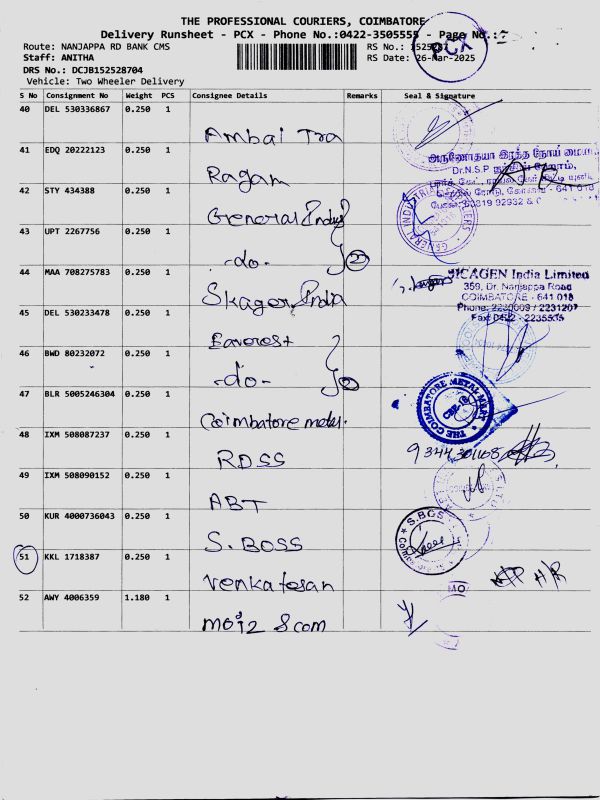 THE PROFESSIONAL COURIERS, COIMBATORE
Delivery Runsheet - PCX - Phone No.:0422-3505555 - Page No.:
PCX
Route: NANJAPPA RD BANK CMS
RS No.:
Staff: ANITHA
RS Date: 26-Mar-2025
DRS No.: DCJB152528704
Vehicle: Two Wheeler Delivery
S No Consignment No Weight PCS Consignee Details Remarks Seal & Signature
40 DEL 530336867 0.250 1
Ambal Tra
41 EDQ 20222123 0.250 1
Ragam
அருணோதயா இரத்த நோய்
Dr.N.S.P.
42 STY 434388 0.250 1
General Indus
43 UPT 2267756 0.250 1
-do- 2
44 MAA 708275783 0.250 1
Skagen India
SICAGEN India Limited
359, Dr. Nanjappa Road
COIMBATORE - 641 018
Phone: 2230009 / 2231207
Fax: 0422 - 2235515
45 DEL 530233478 0.250 1
Eaverest
46 BWD 80232072 0.250 1
-do- 2
47 BLR 5005246304 0.250 1
Coimbatore metal.
THE COIMBATORE METAL MART
CBE-18
48 IXM 508087237 0.250 1
RDSS
9344301168
49 IXM 508090152 0.250 1
ABT
50 KUR 4000736043 0.250 1
S. BOSS
S.BOS
51 KKL 1718387 0.250 1
Venkatesan
52 AWY 4006359 1.180 1
Moiz & com